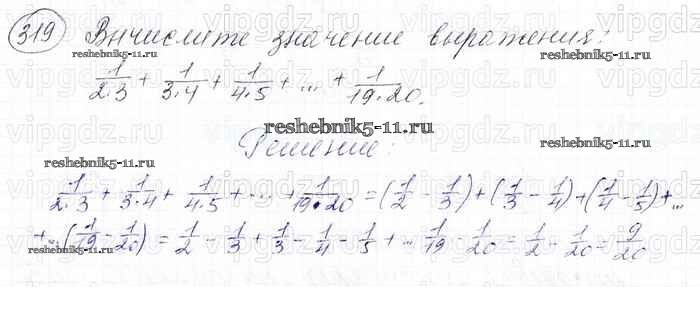 319 Вычислите значение выражения:
reshebnik5-11.ru
1/(2·3) + 1/(3·4) + 1/(4·5) + ... + 1/(19·20).
reshebnik5-11.ru
reshebnik5-11.ru
Решение:
reshebnik5-11.ru
1/(2·3) + 1/(3·4) + 1/(4·5) + ... + 1/(19·20) = (1/2 - 1/3) + (1/3 - 1/4) + (1/4 - 1/5) + ...
+ ... (1/19 - 1/20) = 1/2 - 1/3 + 1/3 - 1/4 - 1/5 + ... 1/19 - 1/20 = 1/2 - 1/20 = 9/20
reshebnik5-11.ru
reshebnik5-11.ru